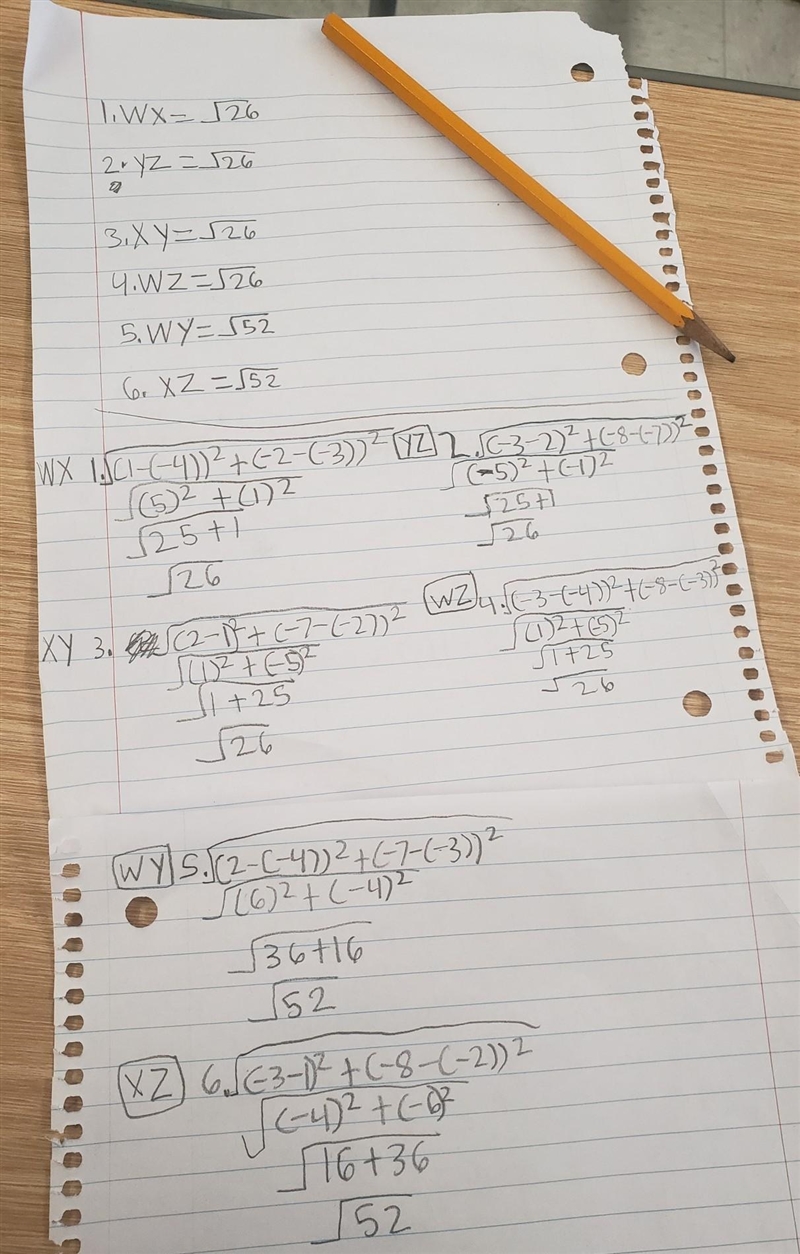 1. WX = √26
2. YZ = √26
3. XY = √26
4. WZ = √26
5. WY = √52
6. XZ = √52
WX 1. √(1-(-4))² + (-2-(-3))²
√(5)² + (1)²
√25+1
√26
YZ 2. √(-3-2)² + (-8-(-7))²
√(-5)² + (-1)²
√25+1
√26
XY 3. √(2-1)² + (-7-(-2))²
√(1)² + (-5)²
√1+25
√26
WZ 4. √(-3-(-4))² + (-8-(-3))²
√(1)² + (-5)²
√1+25
√26
WY 5. √(2-(-4))² + (-7-(-3))²
√(6)² + (-4)²
√36+16
√52
XZ 6. √(-3-1)² + (-8-(-2))²
√(-4)² + (-6)²
√16+36
√52